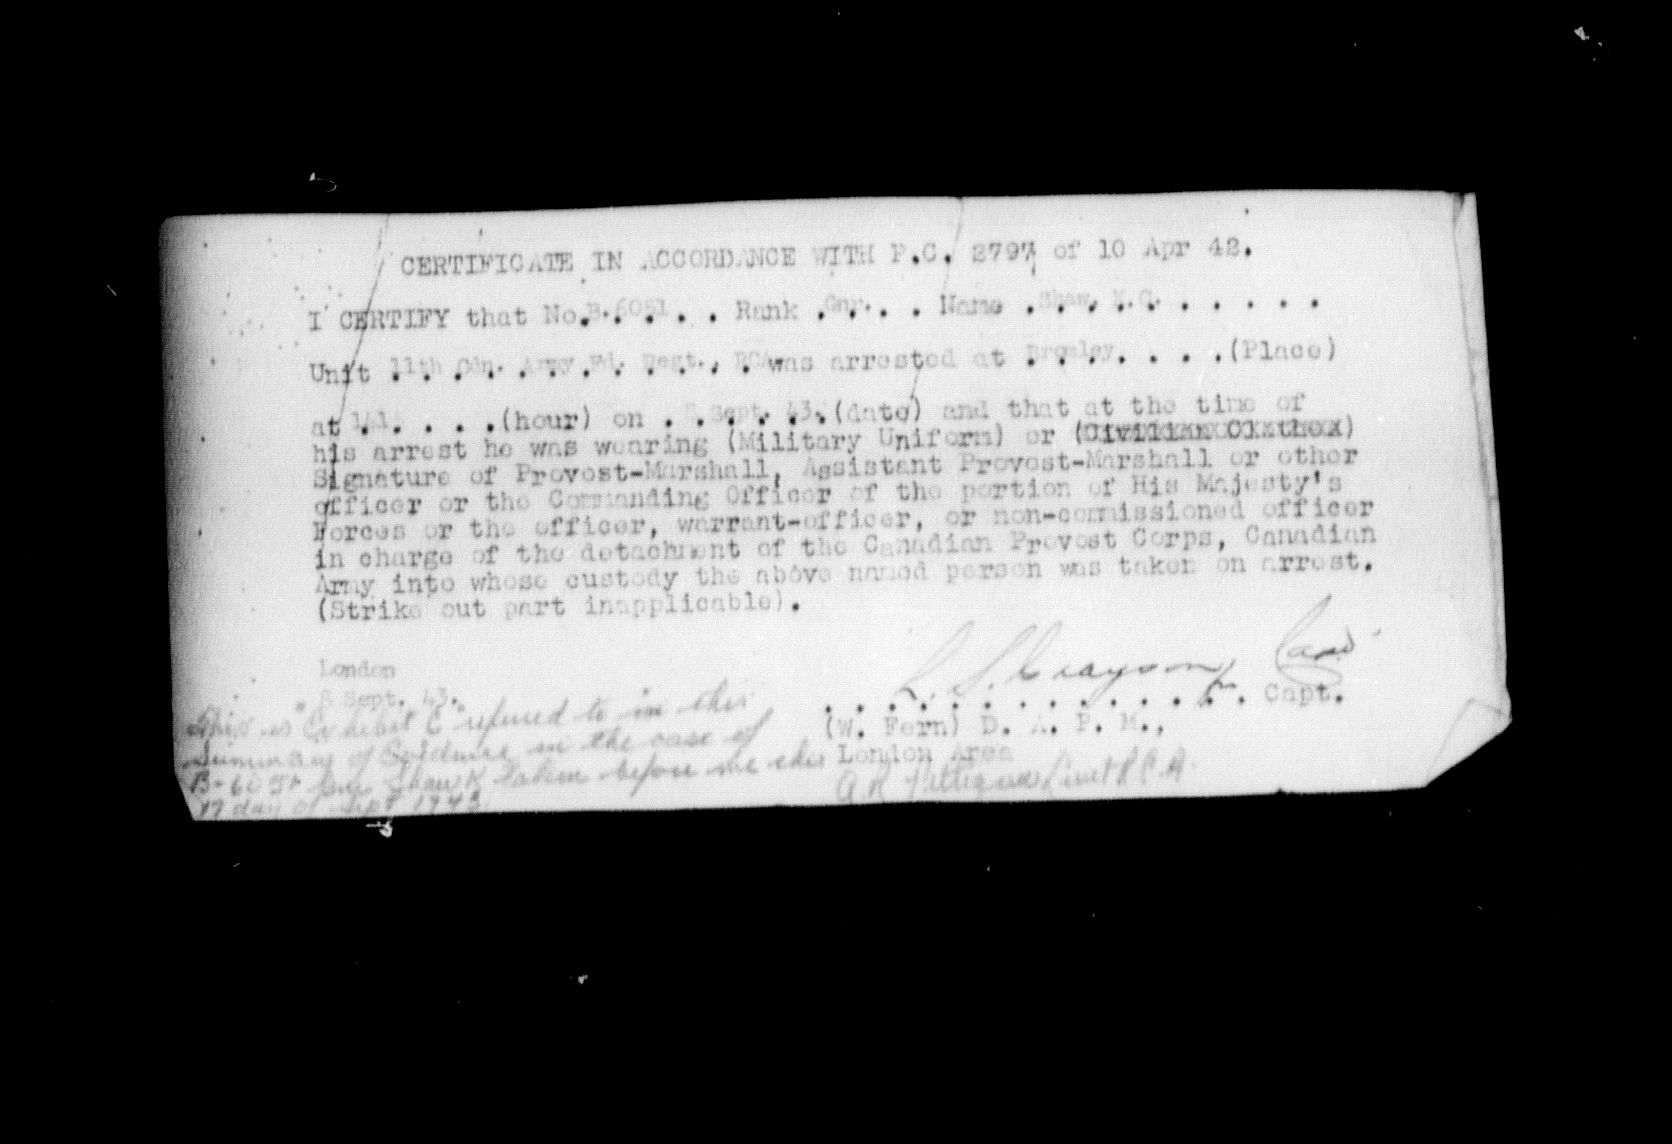 CERTIFICATE IN ACCORDANCE WITH P.C. 2797 of 10 Apr 42.
I CERTIFY that No. B.6051 . . . . Rank . Gnr. . . Name . Shaw, K.C. . . . . . .
Unit 11th Cdn. Army Fd. Regt., RCA was arrested at Bromley . . . . (Place)
at . . . . . (hour) on . Sept. 43. (date) and that at the time of
his arrest he was wearing (Military Uniform) or (Civilian Clothes)
Signature of Provost-Marshall, Assistant Provost-Marshall or other
officer or the Commanding Officer of the portion of His Majesty's
Forces or the officer, warrant-officer, or non-commissioned officer
in charge of the detachment of the Canadian Provost Corps, Canadian
Army into whose custody the above named person was taken on arrest.
(Strike out part inapplicable).
London
8 Sept. 43.
. . . . . . . . . . . . . . Capt.
(W. Fern) D. A. P. M.,
London Area
This is "Exhibit C" refered to in the
Summary of Evidence in the case of
B-6051 Gnr Shaw K taken before me this
17 day of Sept 1943
A.R. Lieut R.C.A.